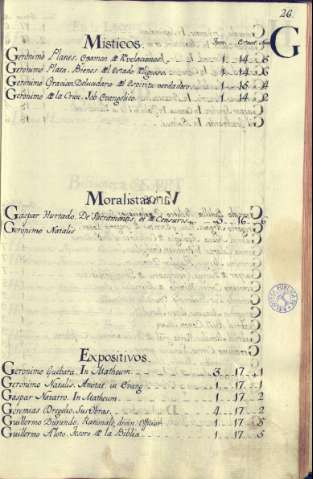 26.
G
Misticos.
Geronimo Planes. Examen de Revelaciones. 1 .. 14 .. 8
Geronimo Plata. Bienes del Estado Religioso. 1 .. 14 .. 6
Geronimo Gracian. Delucidario de Espiritu verdadero. 1 .. 15 .. 4
Geronimo de la Cruz. Job Evangelico. 1 .. 14 .. 2
Moralistas
Gaspar Hurtado. De Sacramentis, et de Censuris. 3 .. 16
Geronimo Natalis
Expositivos.
Geronimo Guebara. In Matheum. 3 .. 17 .. 1
Geronimo Natalis. Annotat. in Evang. 1 .. 17 .. 1
Gaspar Navarro. In Matheum. 1 .. 17 .. 2
Geremias Drexelio. Sus Obras. 4 .. 17 .. 2
Guillermo Durando. Rationale divin. Officior. 1 .. 17 .. 5
Guillermo Aloto. Tesoro de la Biblia. 1 .. 17 .. 5